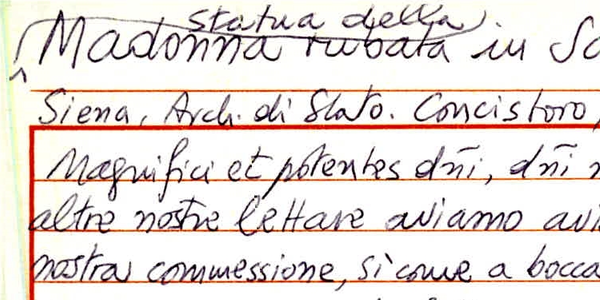 Statua della
Madonna rubata in
Siena, Arch. di Stato. Concistoro,
Magnifici et potentes dñi, dñi
altre nostre lettare aviamo
nostra commessione, sì come a bocca